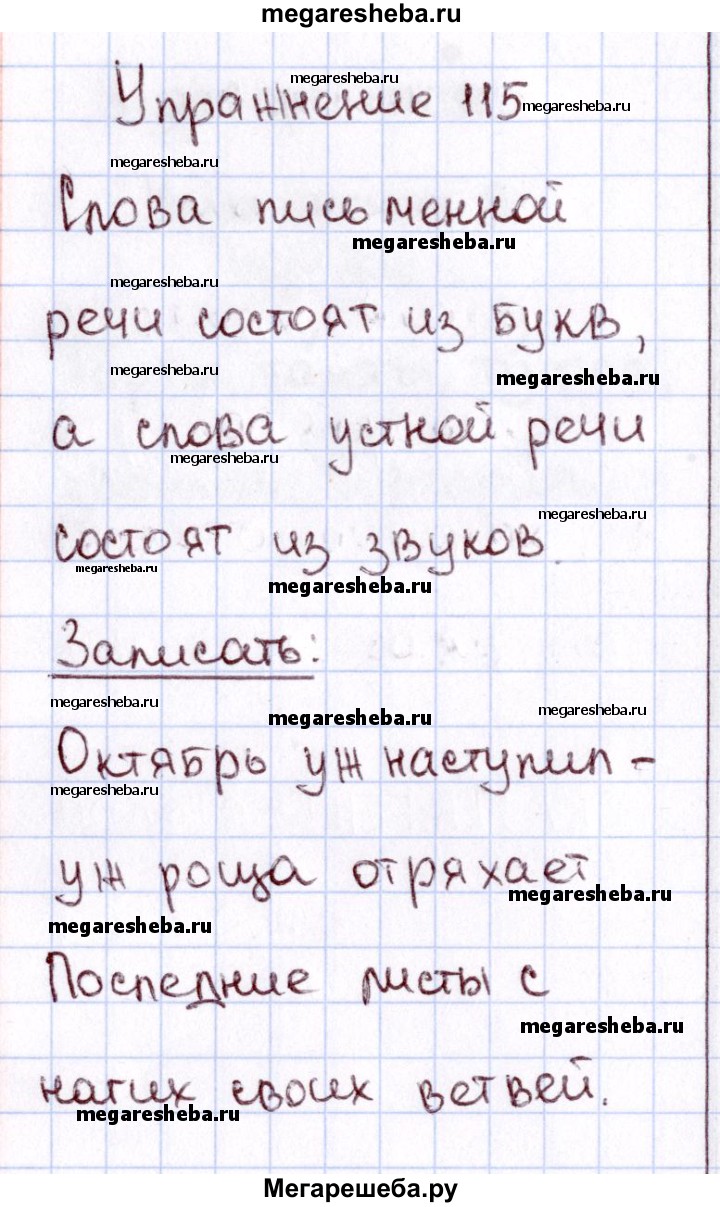 megaresheba.ru
megaresheba.ru
Упражнение 115
megaresheba.ru
megaresheba.ru
Слова письменной
megaresheba.ru
megaresheba.ru
речи состоят из букв,
megaresheba.ru
megaresheba.ru
а слова устной речи
megaresheba.ru
megaresheba.ru
состоят из звуков.
megaresheba.ru
megaresheba.ru
Записать:
megaresheba.ru
megaresheba.ru
megaresheba.ru
Октябрь уж наступил -
megaresheba.ru
уж роща отряхает
megaresheba.ru
megaresheba.ru
Последние листы с
megaresheba.ru
нагих своих ветвей.
megaresheba.ru
Мегарешеба.ру